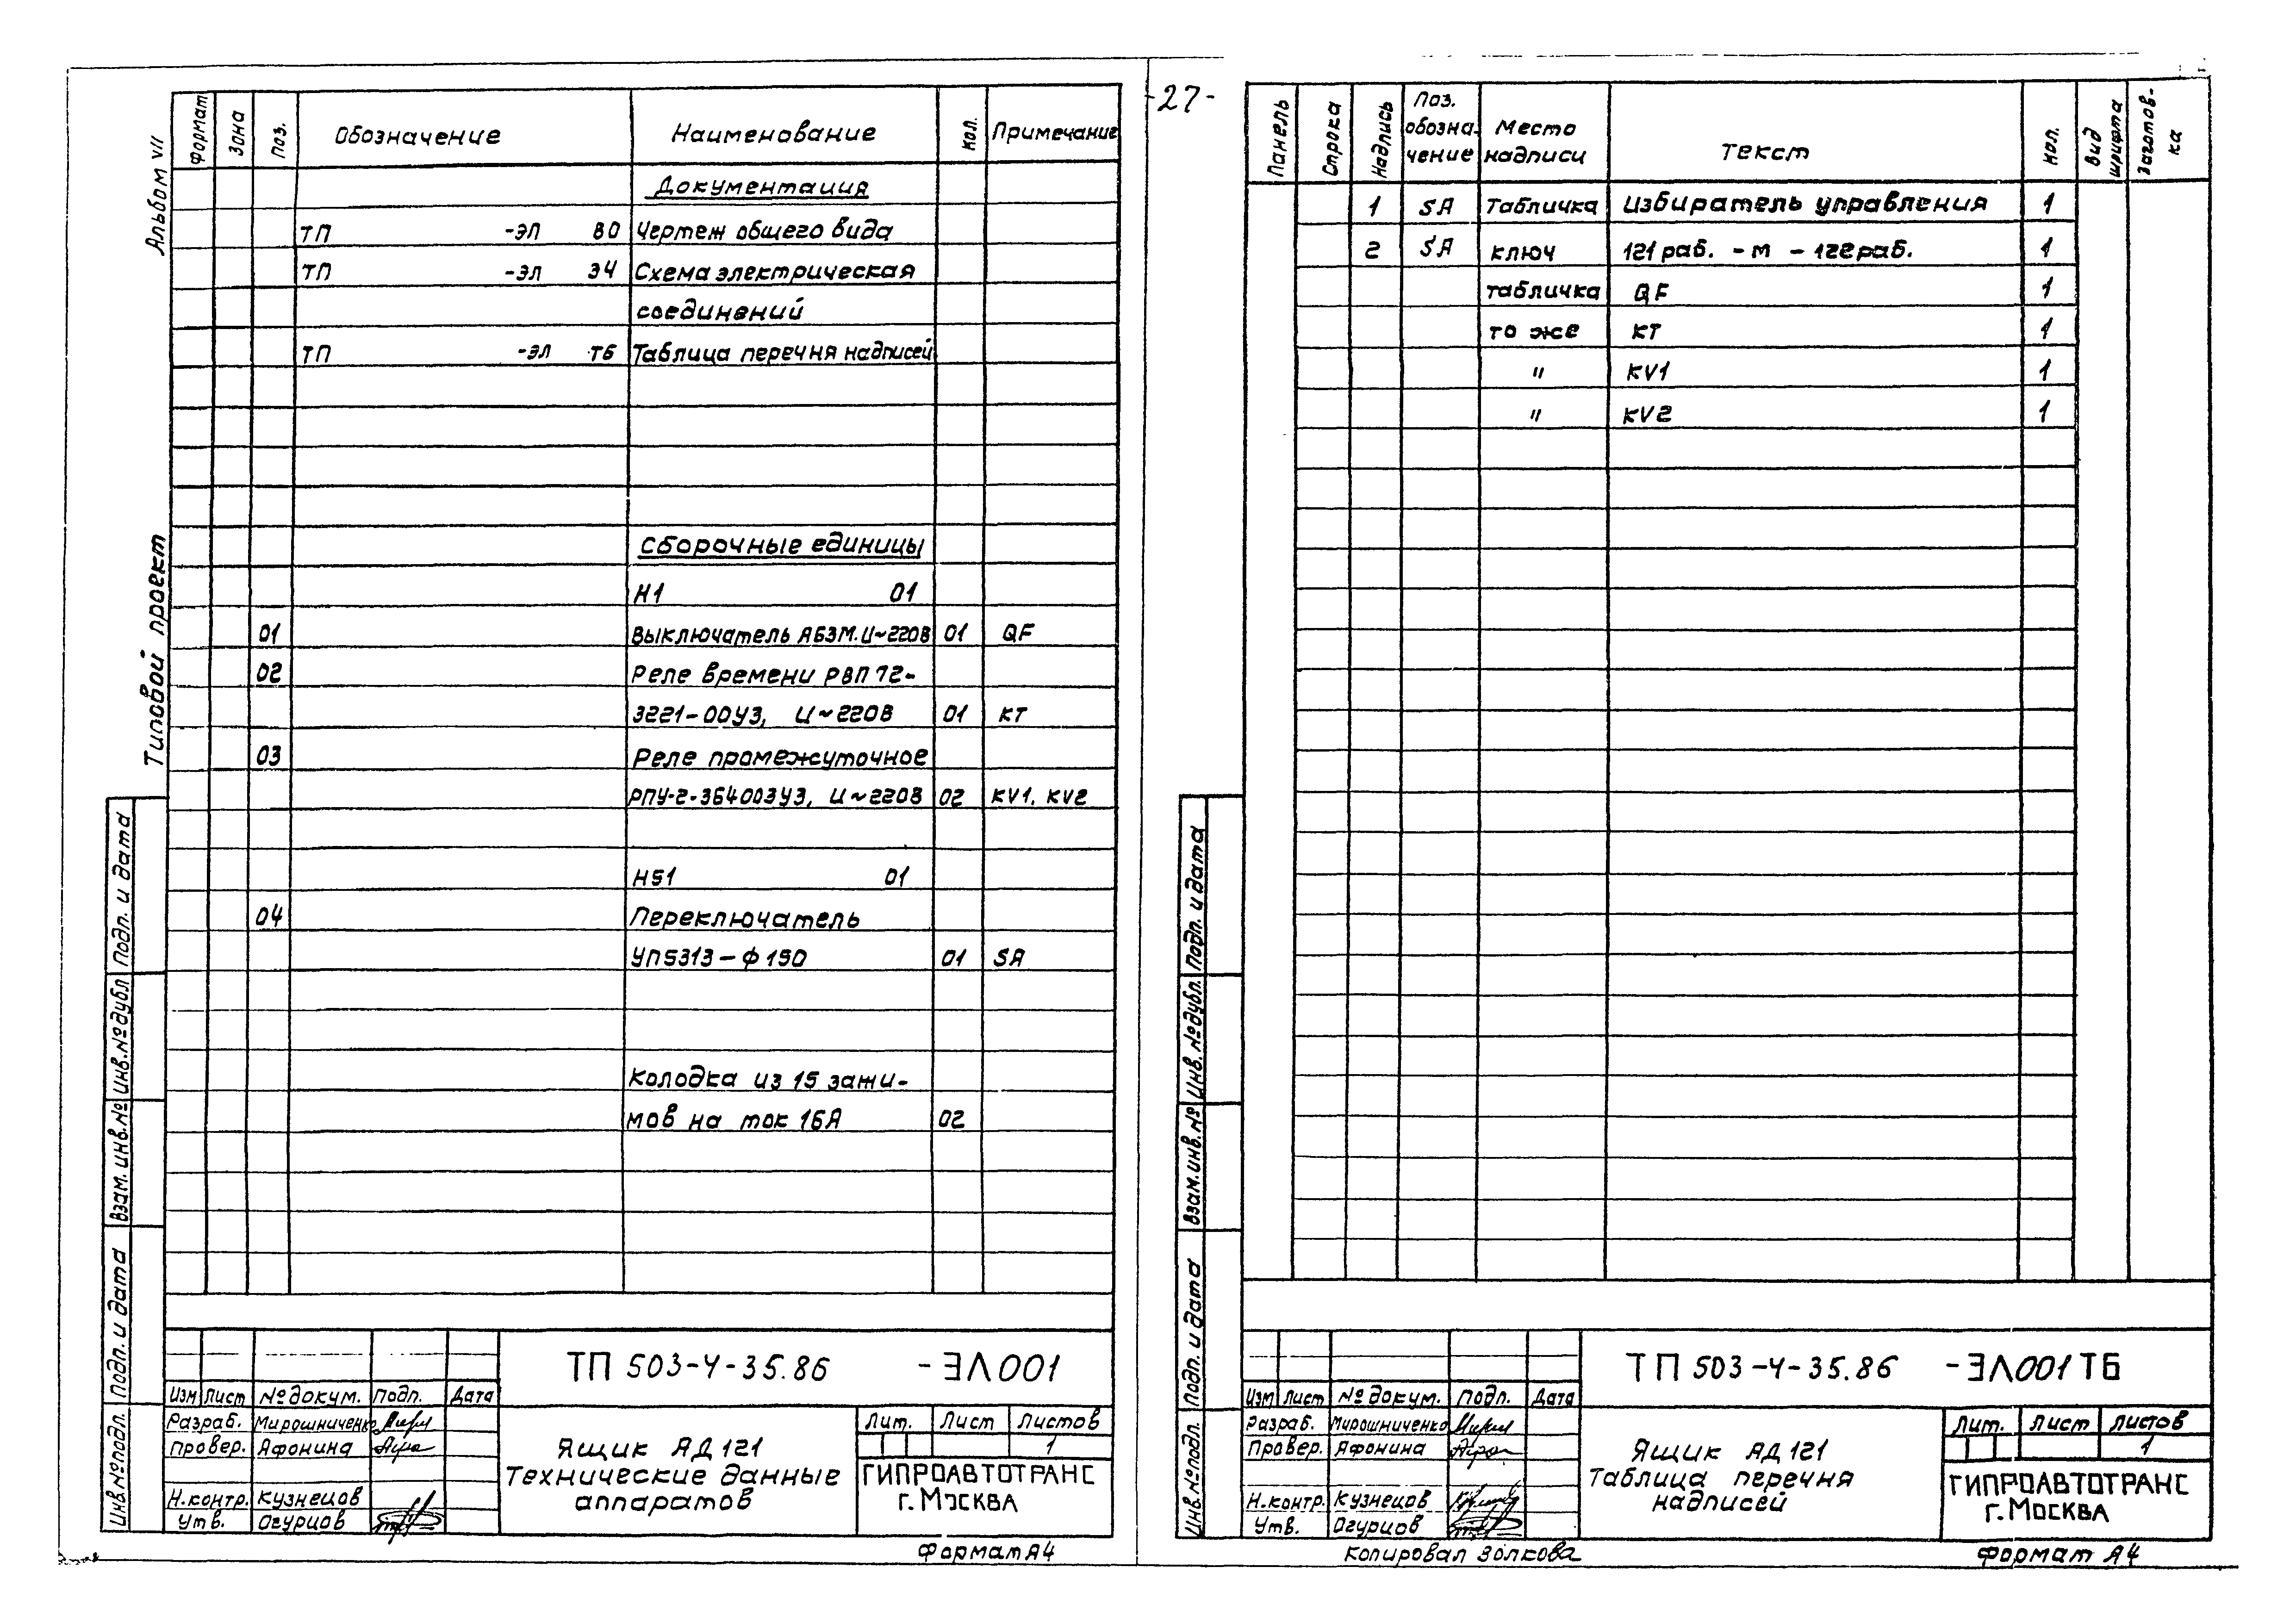 -27-
Альбом VII
Типовой проект
Формат Зона Поз. Обозначение Наименование Кол. Примечание
Документация
ТП -ЭЛ ВО Чертеж общего вида
ТП -ЭЛ Э4 Схема электрическая
соединений
ТП -ЭЛ ТБ Таблица перечня надписей
Сборочные единицы
Н1 01
01 Выключатель АБ3М. U~220В 01 QF
02 Реле времени РВП 72-
3221-00У3, U~220В 01 КТ
03 Реле промежуточное
РПУ-2-364003У3, U~220В 02 KV1, KV2
Н51 01
04 Переключатель
УП5313-Ф190 01 SA
Колодка из 15 зажи-
мов на ток 16А 02
Подп. и дата
Инв.№ дубл
Взам. инв.№
Подп. и дата
Инв.№ подл.
ТП 503-4-35.86 -ЭЛ001
Изм Лист № докум. Подп. Дата
Разраб. Мирошниченко
Провер. Афонина
Н.контр. Кузнецов
Утв. Огурцов
Ящик АД 121
Технические данные
аппаратов
Лит. Лист Листов
1
ГИПРОАВТОТРАНС
г. МОСКВА
Формат А4
Панель Строка Надпись Поз. обозна-чение Место надписи Текст Кол. Вид шрифта Заготов-ка
1 SA Табличка Избиратель управления 1
2 SA ключ 121 раб. - М - 122 раб. 1
табличка QF 1
то же КТ 1
" KV1 1
" KV2 1
Подп. и дата
Инв.№ дубл.
Взам.инв.№
Подп. и дата
Инв.№ подл.
ТП 503-4-35.86 -ЭЛ001 ТБ
Изм Лист № докум. Подп. Дата
Разраб. Мирошниченко
Провер. Афонина
Н.контр. Кузнецов
Утв. Огурцов
Ящик АД 121
Таблица перечня
надписей
Лит. Лист Листов
1
ГИПРОАВТОТРАНС
г. МОСКВА
Копировал Золкова
Формат А4